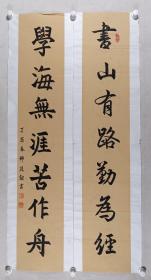 書山有路勤為經
學海無涯苦作舟
丁酉春